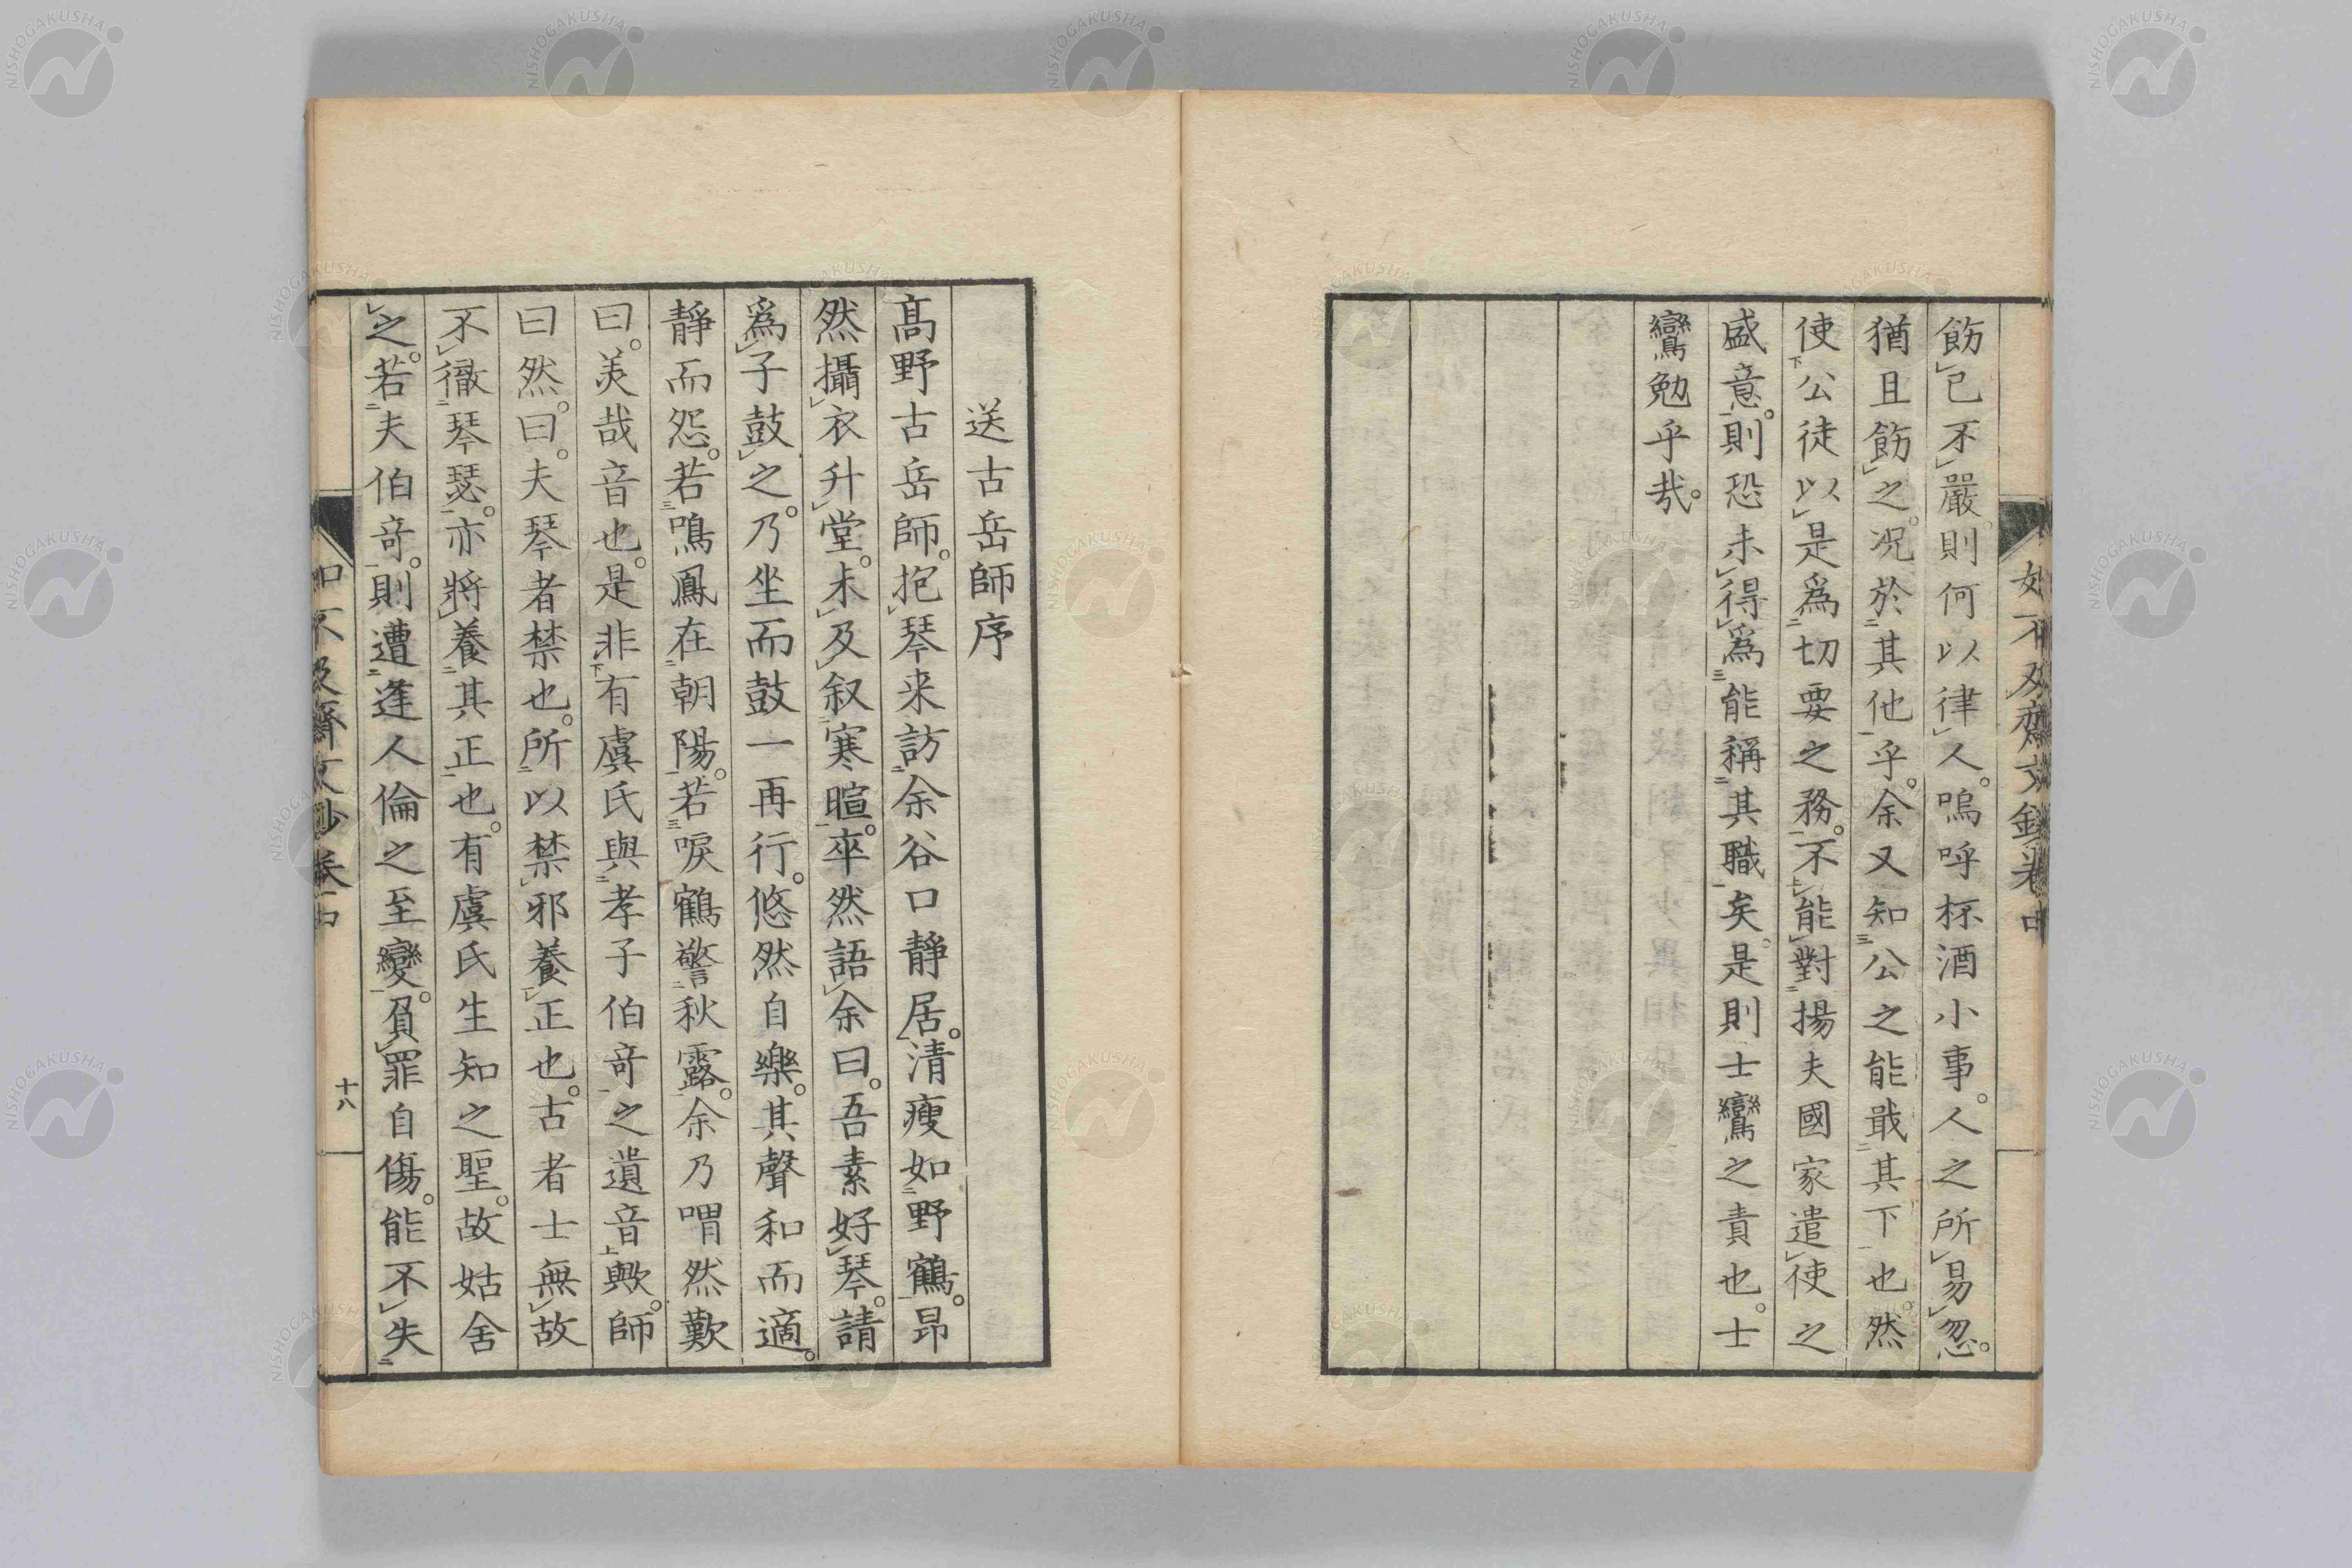 如不及齋文鈔卷中
飭己不嚴則何以律人。嗚呼杯酒小事。人之所易忽。
猶且飭之。况於其他乎。余又知公之能戢其下也。然
使公徒以是為切要之務。不能對揚夫國家遣使之
盛意。則恐未得為能稱其職矣。是則士鸞之責也。士
鸞勉乎哉。
送古岳師序
髙野古岳師。抱琴来訪余谷口靜居。清瘦如野鶴。昂
然攝衣升堂。未及叙寒暄。卒然語余曰。吾素好琴。請
為子鼓之。乃坐而鼓一再行。悠然自樂。其聲和而適。
靜而怨。若鳴鳳在朝陽。若唳鶴警秋露。余乃喟然歎
曰。美哉音也。是非有虞氏與孝子伯奇之遺音歟。師
曰然。曰。夫琴者禁也。所以禁邪養正也。古者士無故
不徹琴瑟。亦將養其正也。有虞氏生知之聖。故姑舍
之。若夫伯奇。則遭逢人倫之至變。負罪自傷。能不失
如不及齋文鈔卷中
十八
NISHOGAKUSHA